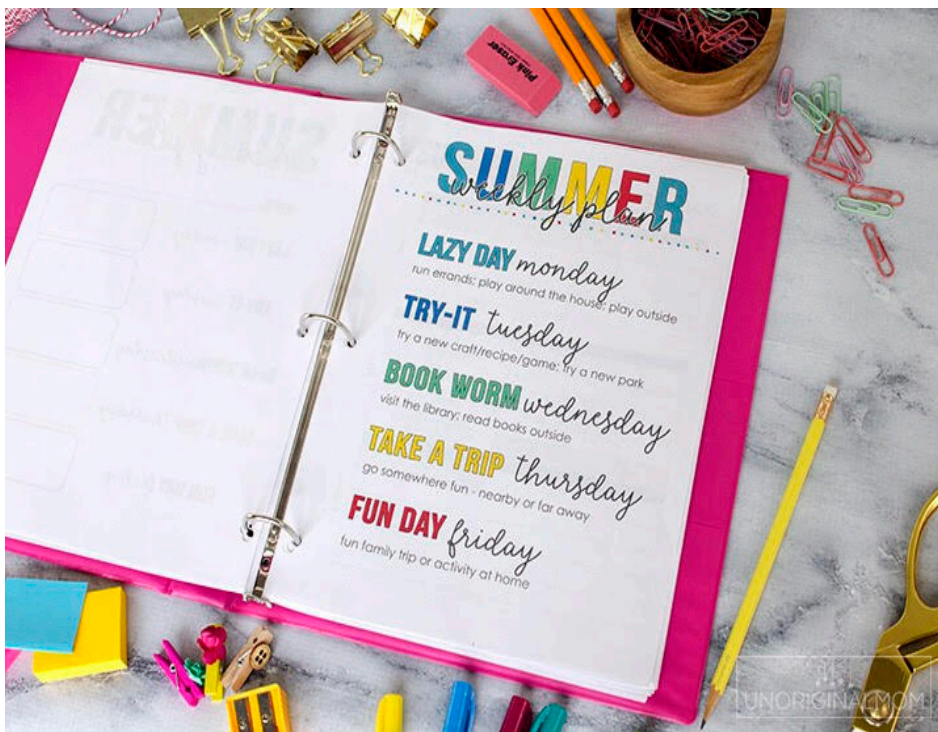 Pink Eraser
SUMMER
weekly plan
LAZY DAY monday
run errands; play around the house; play outside
TRY-IT tuesday
try a new craft/recipe/game; try a new park
BOOK WORM wednesday
visit the library; read books outside
TAKE A TRIP thursday
go somewhere fun - nearby or far away
FUN DAY friday
fun family trip or activity at home
UNORIGINALMOM